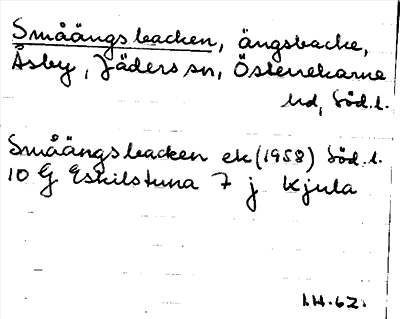 Småängsbacken, ängsbacke,
Åsby, Jäders sn, Österrekarne
hd, Söd.l.
Småängsbacken ek (1958) Söd.l.
10 G Eskilstuna 7 j Kjula
I.H. 62.